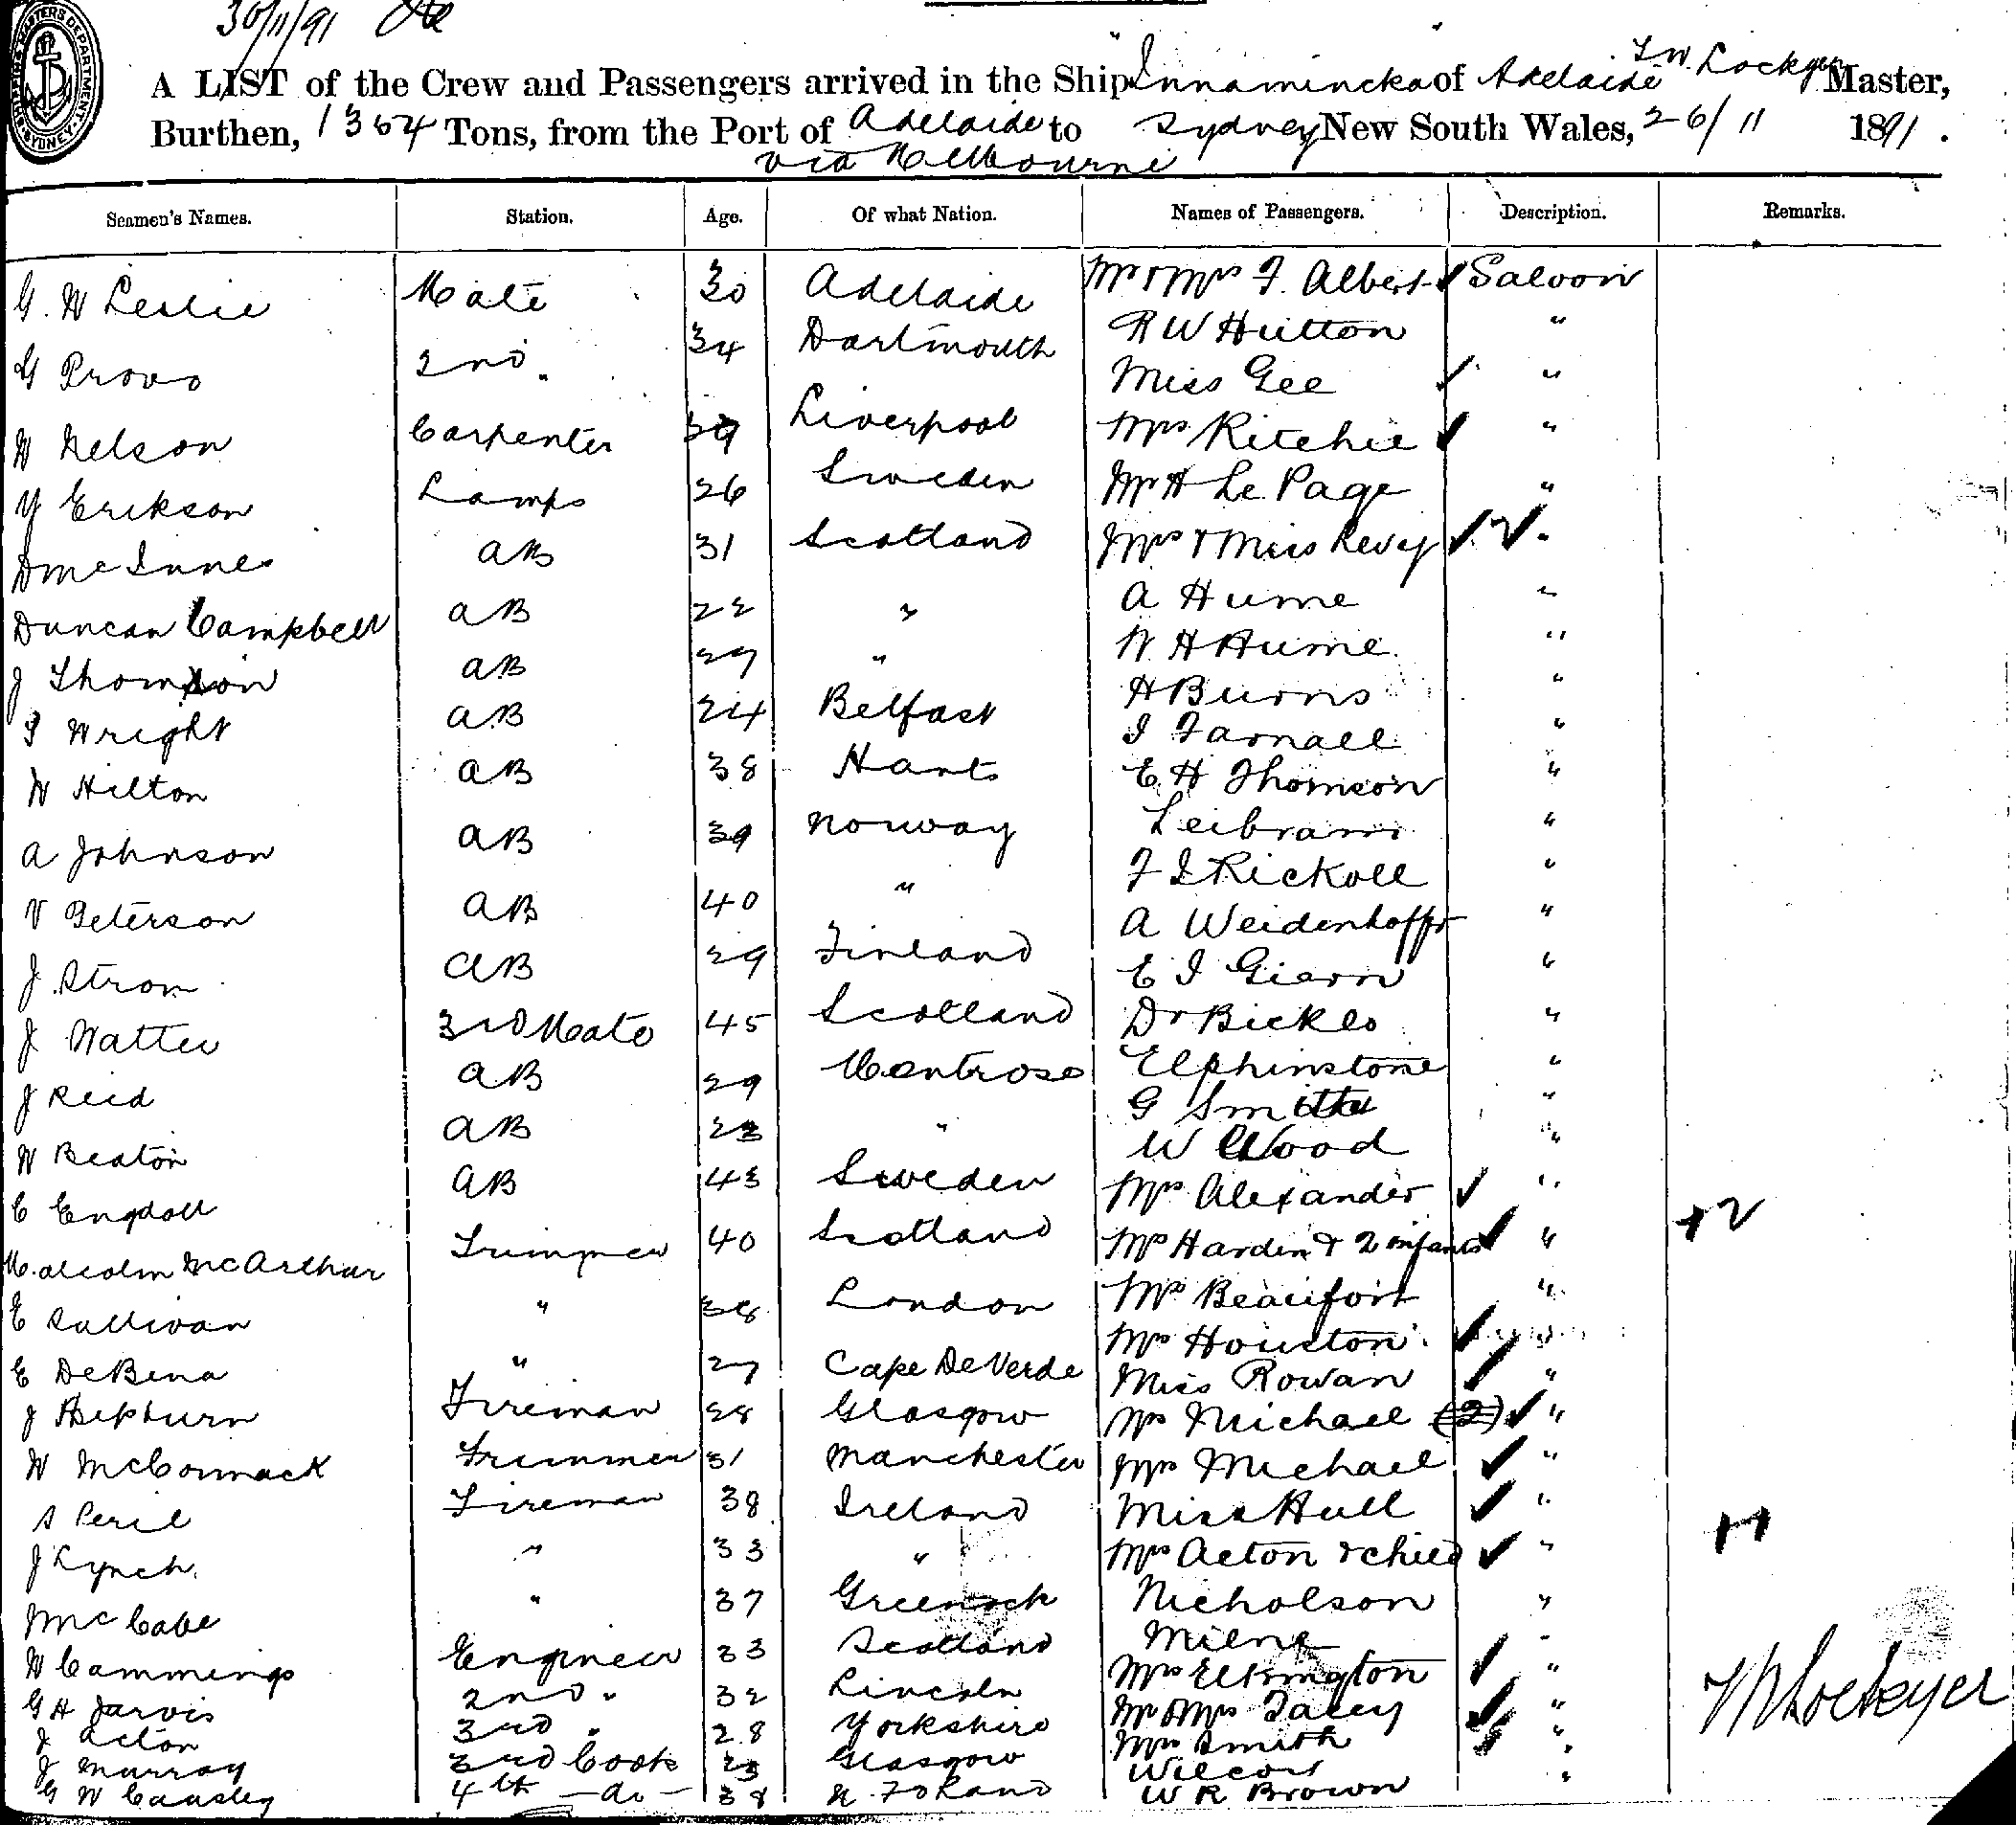 30/11/91
SHIPPING MASTERS DEPARTMENT SYDNEY
A LIST of the Crew and Passengers arrived in the Ship "Innamincka" of Adelaide T W. Lockyer Master,
Burthen, 1364 Tons, from the Port of Adelaide to Sydney New South Wales, 26/11 1891.
via Melbourne
Seamen's Names. Station. Age. Of what Nation. Names of Passengers. Description. Remarks.
G. W Leslie Mate 30 Adelaide Mr & Mrs F. Albert Saloon
G Provo 2nd " 34 Dartmouth R W Hutton "
Miss Gee "
W Nelson Carpenter 39 Liverpool Mrs Ritchie "
Y Erikson Lamps 26 Sweden Mr H Le Page "
D McInnes AB 31 Scotland Mrs & Miss Revey "
Duncan Campbell AB 22 " A Hume "
J Thomson AB 27 " W H Hume "
H Burns "
Wright AB 24 Belfast Farnall "
W Hilton AB 38 Hants E. H Thomson "
A Johnson AB 39 Norway "
Rickoll "
V Peterson AB 40 " A Weidenhoffr "
J. Strom AB 29 Finland E "
J Watter 3rd Mate 45 Scotland Dr Bickle "
J Reid AB 29 Montrose Elphinstone "
G Smith "
W Beaton AB 23 " W Wood "
C Engdoll AB 43 Sweden Mrs Alexander "
Malcolm McArthur Trimmer 40 Scotland Mrs Hardin & 2 infants " +2
E Sullivan " 38 London Mr Beaufort "
Mrs Houston "
E DeBena " 27 Cape De Verde Miss Rowan "
J Hepburn Fireman 28 Glasgow Mrs Michael (2) "
W McCormack Trimmer 31 Manchester Mrs Michael "
A Peril Fireman 38 Ireland Miss Hull "
J Lynch. " 33 " Mrs Acton & child " +1
McCabe " 37 Greenock Nicholson "
W Cammings Engineer 33 Scotland Milne "
Mrs Elkington "
G H Jarvis 2nd " 32 Lincoln Mr & Mrs "
J Acton 3rd " 28 Yorkshire Mrs Smith "
J Murray 3rd Cook 23 Glasgow Wilcox "
G W Causley 4th -do- 38 W R Brown
T W Lockyer